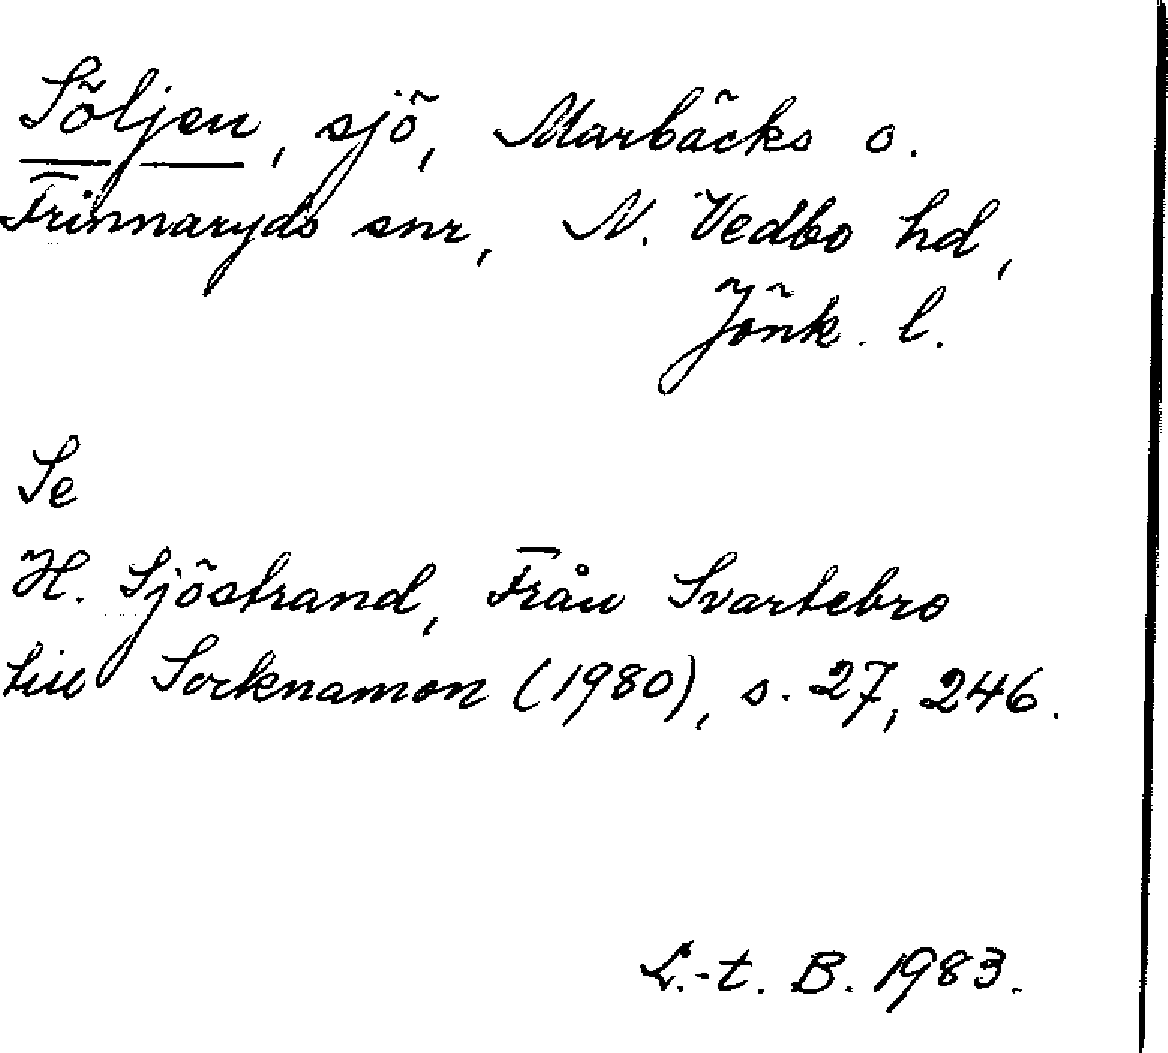 Söljen, sjö, Marbäcks o.
Frinnaryds snr, N. Vedbo hd,
Jönk. l.
Se
H. Sjöstrand, Från Svartebro
till Sorknamon (1980), s. 27, 246.
L.-t. B. 1983.